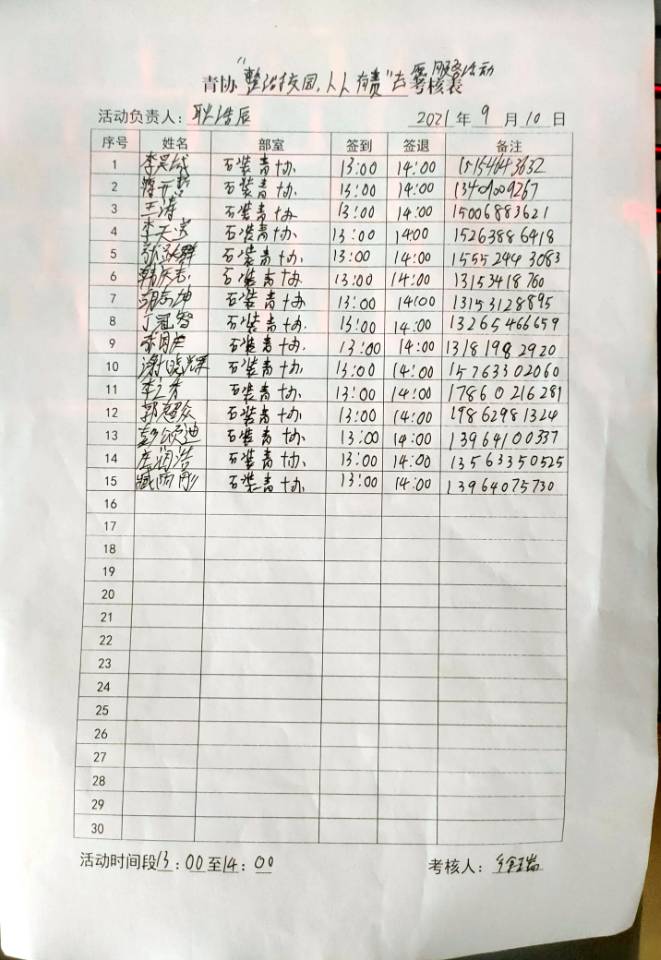 青协"整洁校园,人人有责"志愿服务活动考核表
活动负责人:耿浩辰 2021年9月10日
序号 姓名 部室 签到 签退 备注
1 石装青协 13:00 14:00
2 石装青协 13:00 14:00 13409009267
3 王涛 石装青协 13:00 14:00 15006883621
4 石装青协 13:00 1400 15263886418
5 石装青协 13:00 14:00 15552443083
6 石装青协 13:00 14:00 13153418760
7 石装青协 13:00 14:00 13153128895
8 丁冠智 石装青协 13:00 14:00 13265466659
9 石装青协 13:00 14:00 13181982920
10 谢晓霖 石装青协 13:00 14:00 15763302060
11 石装青协 13:00 14:00 17860216281
12 郭超众 石装青协 13:00 14:00 19862981324
13 彭颂迪 石装青协 13:00 14:00 13964100337
14 庄润浩 石装青协 13:00 14:00 13563350525
15 石装青协 13:00 14:00 13964075730
16
17
18
19
20
21
22
23
24
25
26
27
28
29
30
活动时间段13:00至14:00 考核人: